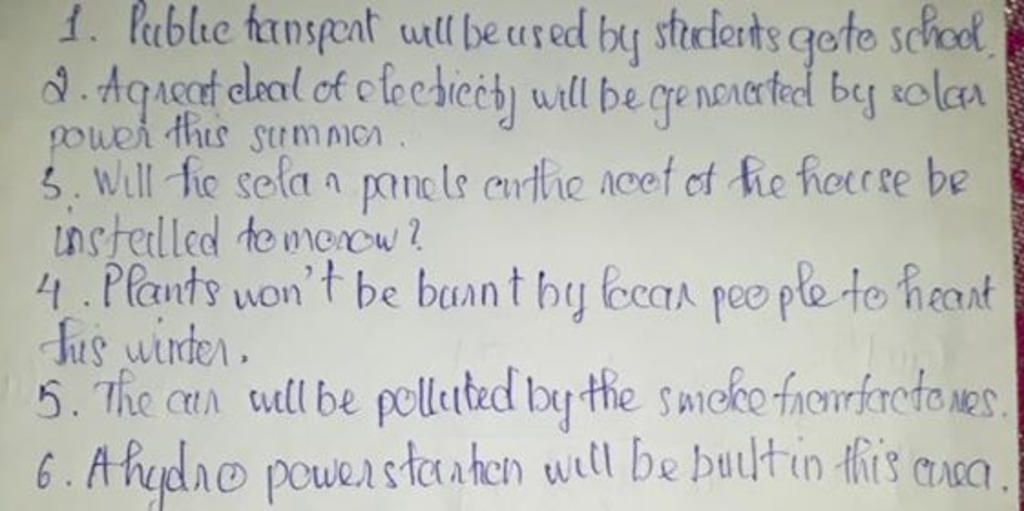 1. Public transport will be used by students go to school.
2. A great deal of electricity will be generated by solar
power this summer.
3. Will the solar panels on the roof of the house be
installed tomorow?
4. Plants won't be burnt by local people to heart
this winter.
5. The air will be polluted by the smoke from factories.
6. A hydro power station will be built in this area.